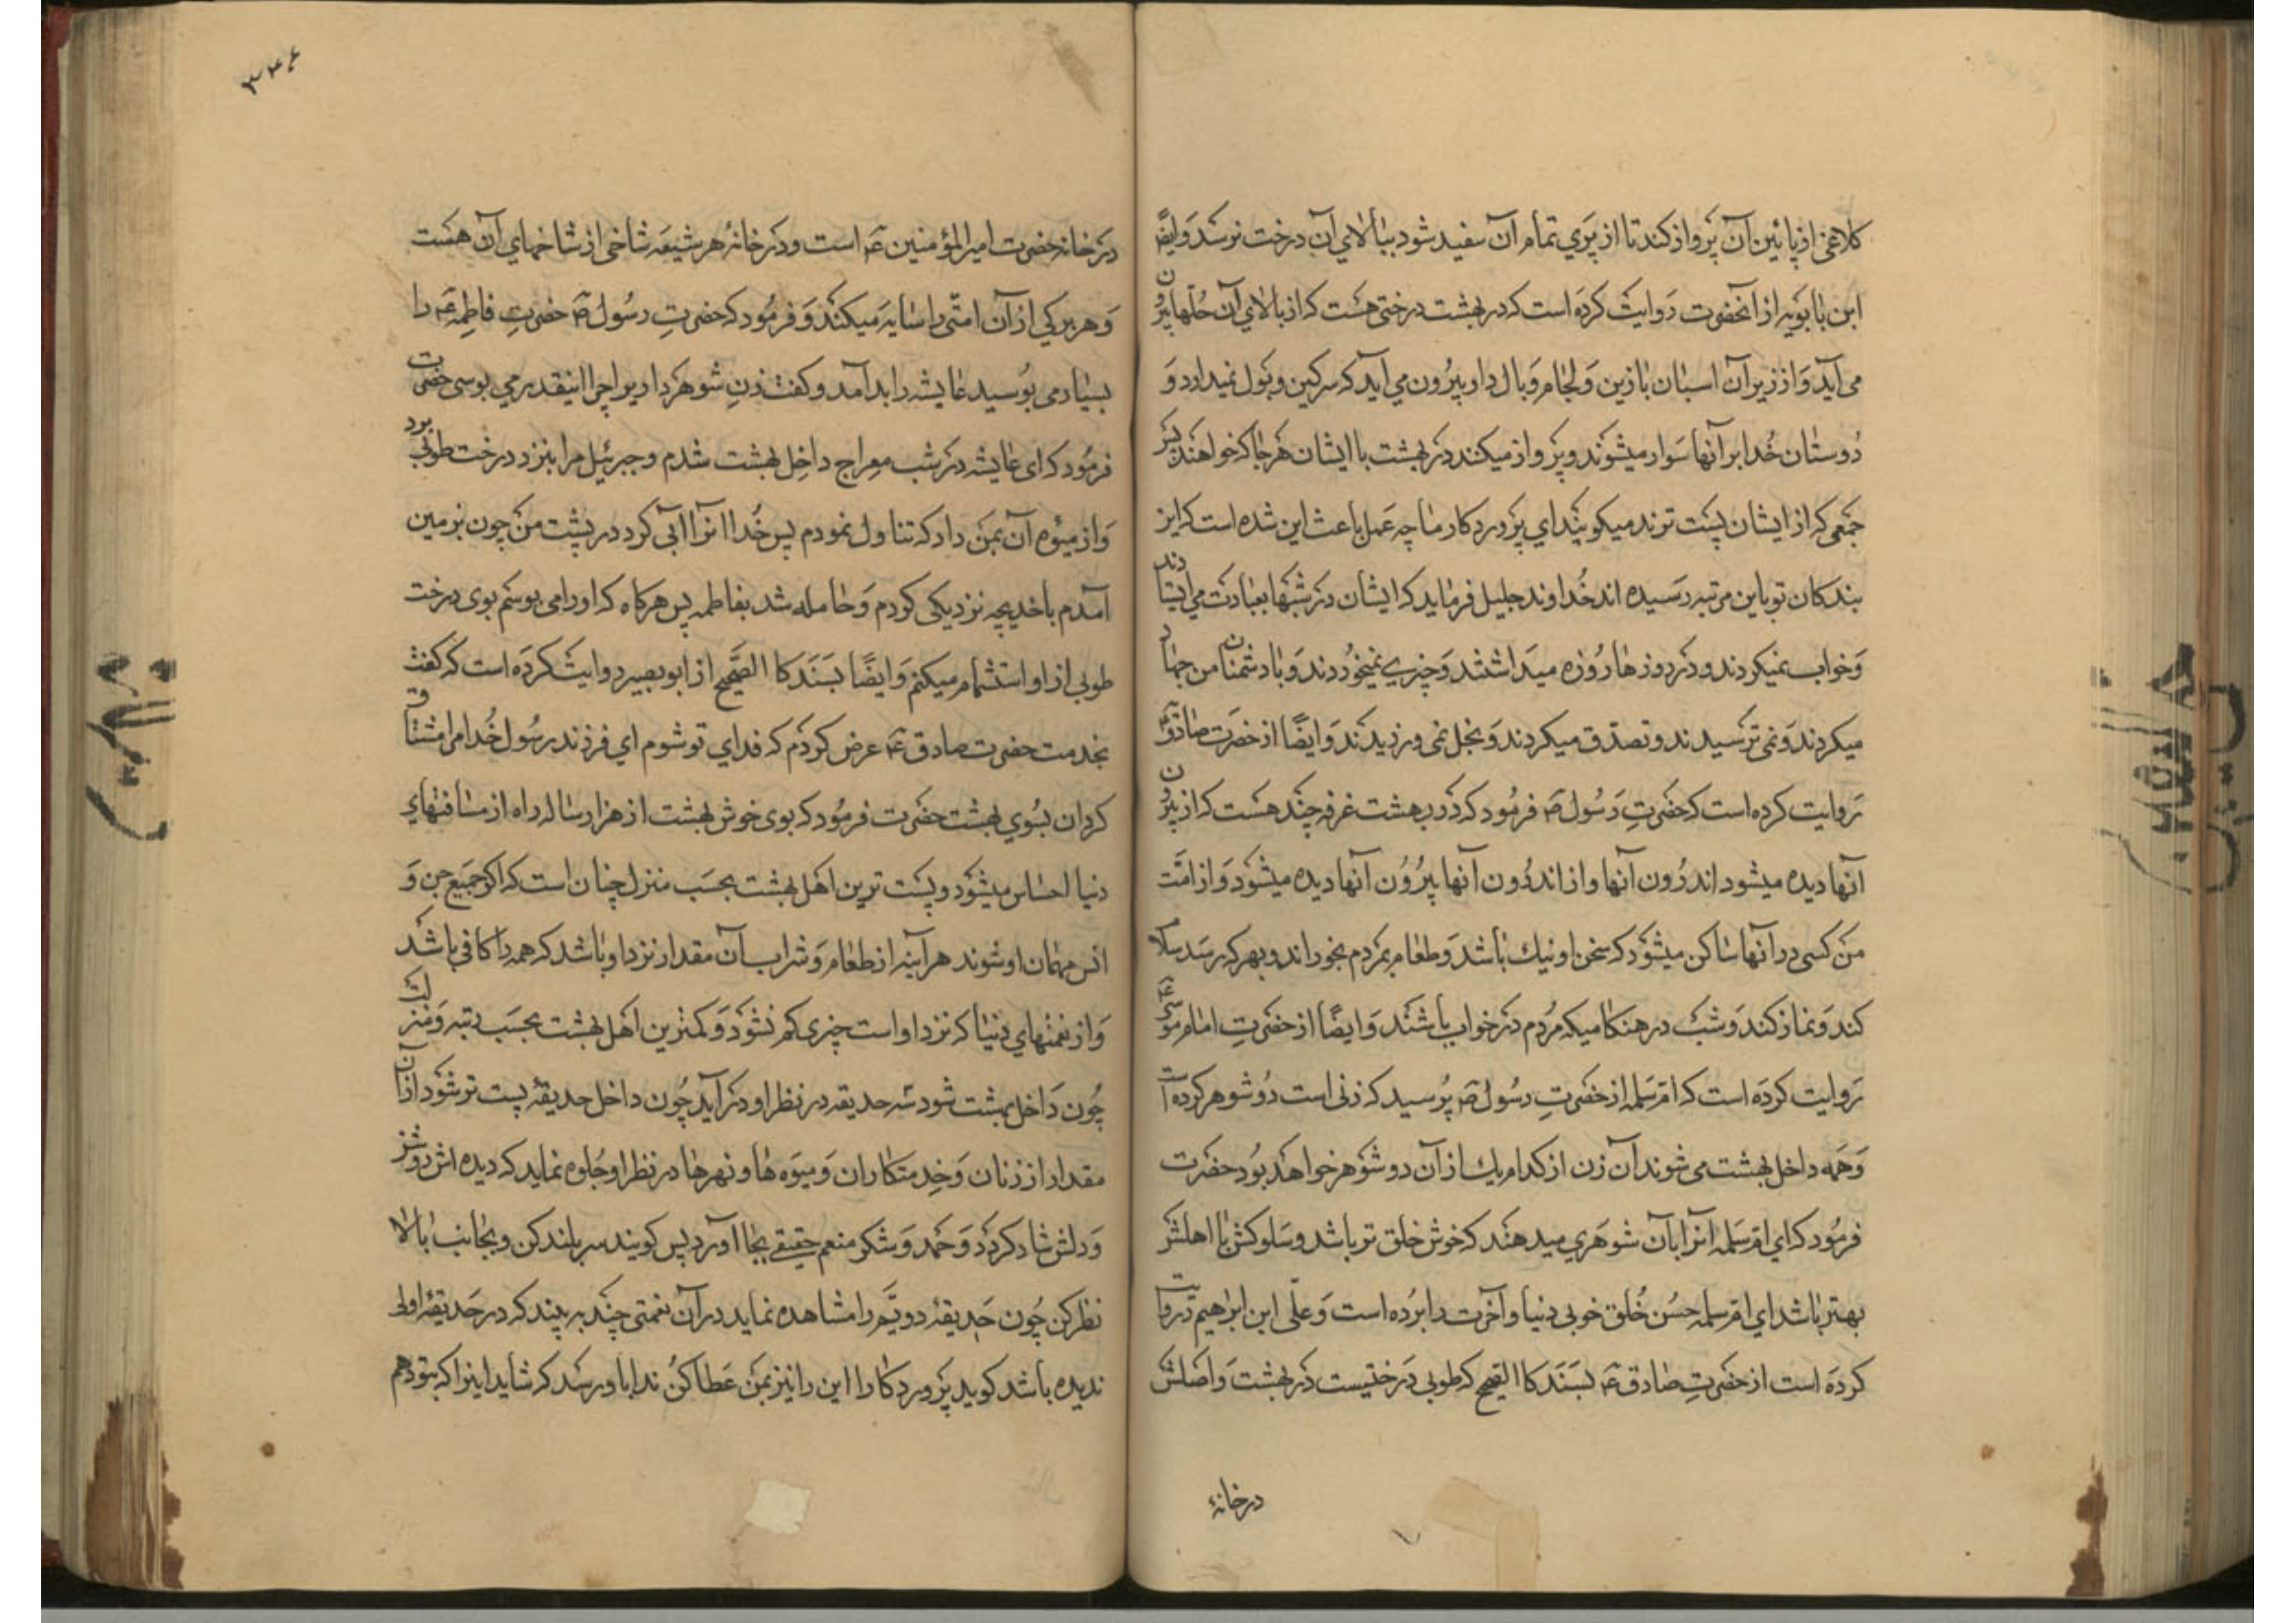 کلاغی از پائین آن پرواز کند تا از پیری تمام آن سفید شود ببالای آن درخت نرسد وایضًا
ابن بابویه از انحضرت روایت کرده است که در بهشت درختی هست که از بالای آن حلّها بیرون
می آید و از زیر آن اسبان بازین و لجام و بال دار بیرون می آید که سرکین و بول نمیدارد و
دوستان خدا بر آنها سوار میشوند و پرواز میکنند در بهشت با ایشان هرجا که خواهند پس
جمعی که از ایشان پست ترند میکویند ای پروردکار ما چه عمل باعث این شده است که این
بندکان تو باین مرتبه رسیده اند خداوند جلیل فرماید که ایشان در شبها بعبادت می ایستادند
و خواب نمیکردند و در روزها روزه میداشتند و چیزی نمیخوردند و با دشمنان من جهاد
میکردند و نمی ترسیدند و تصدق میکردند و بخل نمی ورزیدند و ایضًا از حضرت صادق ع
روایت کرده است که حضرت رسول ص فرمود که در بهشت غرفه چند هست که از بیرون
آنها دیده میشود اندرون آنها و از اندرون آنها بیرون آنها دیده میشود و از امّت
من کسی در آنها ساکن میشود که سخن او نیك باشد و طعام بمردم بخوراند و بهر که رسد سلام
کند و نماز کند و شب در هنکامیکه مردم در خواب باشند و ایضًا از حضرت امام موسی ع
روایت کرده است که ام سلمه از حضرت رسول ص پرسید که زنی است دو شوهر کرده است
و همه داخل بهشت می شوند آن زن از کدام یك از آن دو شوهر خواهد بود حضرت
فرمود که ای ام سلمه انرا بآن شوهری میدهند که خوش خلق تر باشد و سلوکش با اهلش
بهتر باشد ای ام سلمه حسن خلق خوبی دنیا و آخرت را برده است و علّی ابن ابراهیم روایت
کرده است از حضرت صادق ع بسند کاالصّحیح که طوبی درختیست در بهشت و اصلش
درخانهٔ
۳۴۶
در خانهٔ حضرت امیرالمؤمنین ع است و در خانهٔ هر شیعه شاخی از شاخهای آن هست
و هر برکی از آن امّتی را سایه میکند و فرمود که حضرت رسول ص حضرت فاطمه ع را
بسیار می بوسید عایشه را بد آمد و کفت زن شوهر دار را چرا اینقدر می بوسی حضرت
فرمود که ای عایشه در شب معراج داخل بهشت شدم و جبرئیل مرا بنزد درخت طوبی برد
و از میوه آن بمن داد که تناول نمودم پس خدا انرا آبی کرد در پشت من چون بزمین
آمدم با خدیجه نزدیکی کردم و حامله شد بفاطمه پس هرکاه که او را می بوسم بوی درخت
طوبی از او استشمام میکنم و ایضًا بسند کاالصّحیح از ابوبصیر روایت کرده است که کفت
بخدمت حضرت صادق ع عرض کردم که فدای تو شوم ای فرزند رسول خدا مرا مشتاق
کردان بسوی بهشت حضرت فرمود که بوی خوش بهشت از هزار ساله راه از مسافتهای
دنیا احساس میشود و پست ترین اهل بهشت بحسب منزل چنان است که اکر جمیع جن و
انس مهمان او شوند هر آینه از طعام و شراب آن مقدار نزد او باشد که همه را کافی باشد
و از نعمتهای دنیا که نزد او است چیزی کم نشود و کمترین اهل بهشت بحسب رتبه و منزلت
چون داخل بهشت شود سه حدیقه در نظر او در آید چون داخل حدیقهٔ پست تر شود از آن
مقدار از زنان و خدمتکاران و میوه ها و نهرها در نظر او جلوه نماید که دیده اش روشن
و دلش شاد کردد و حمد و شکر منعم حقیقی بجا آورد پس کویند سر بلند کن و بجانب بالا
نظر کن چون حدیقهٔ دویّم را مشاهده نماید در آن نعمتی چند به بیند که در حدیقه اولی
ندیده باشد کوید پروردکارا این را نیز بمن عطا کن ندا باو رسد که شاید اینرا که بتو دهم